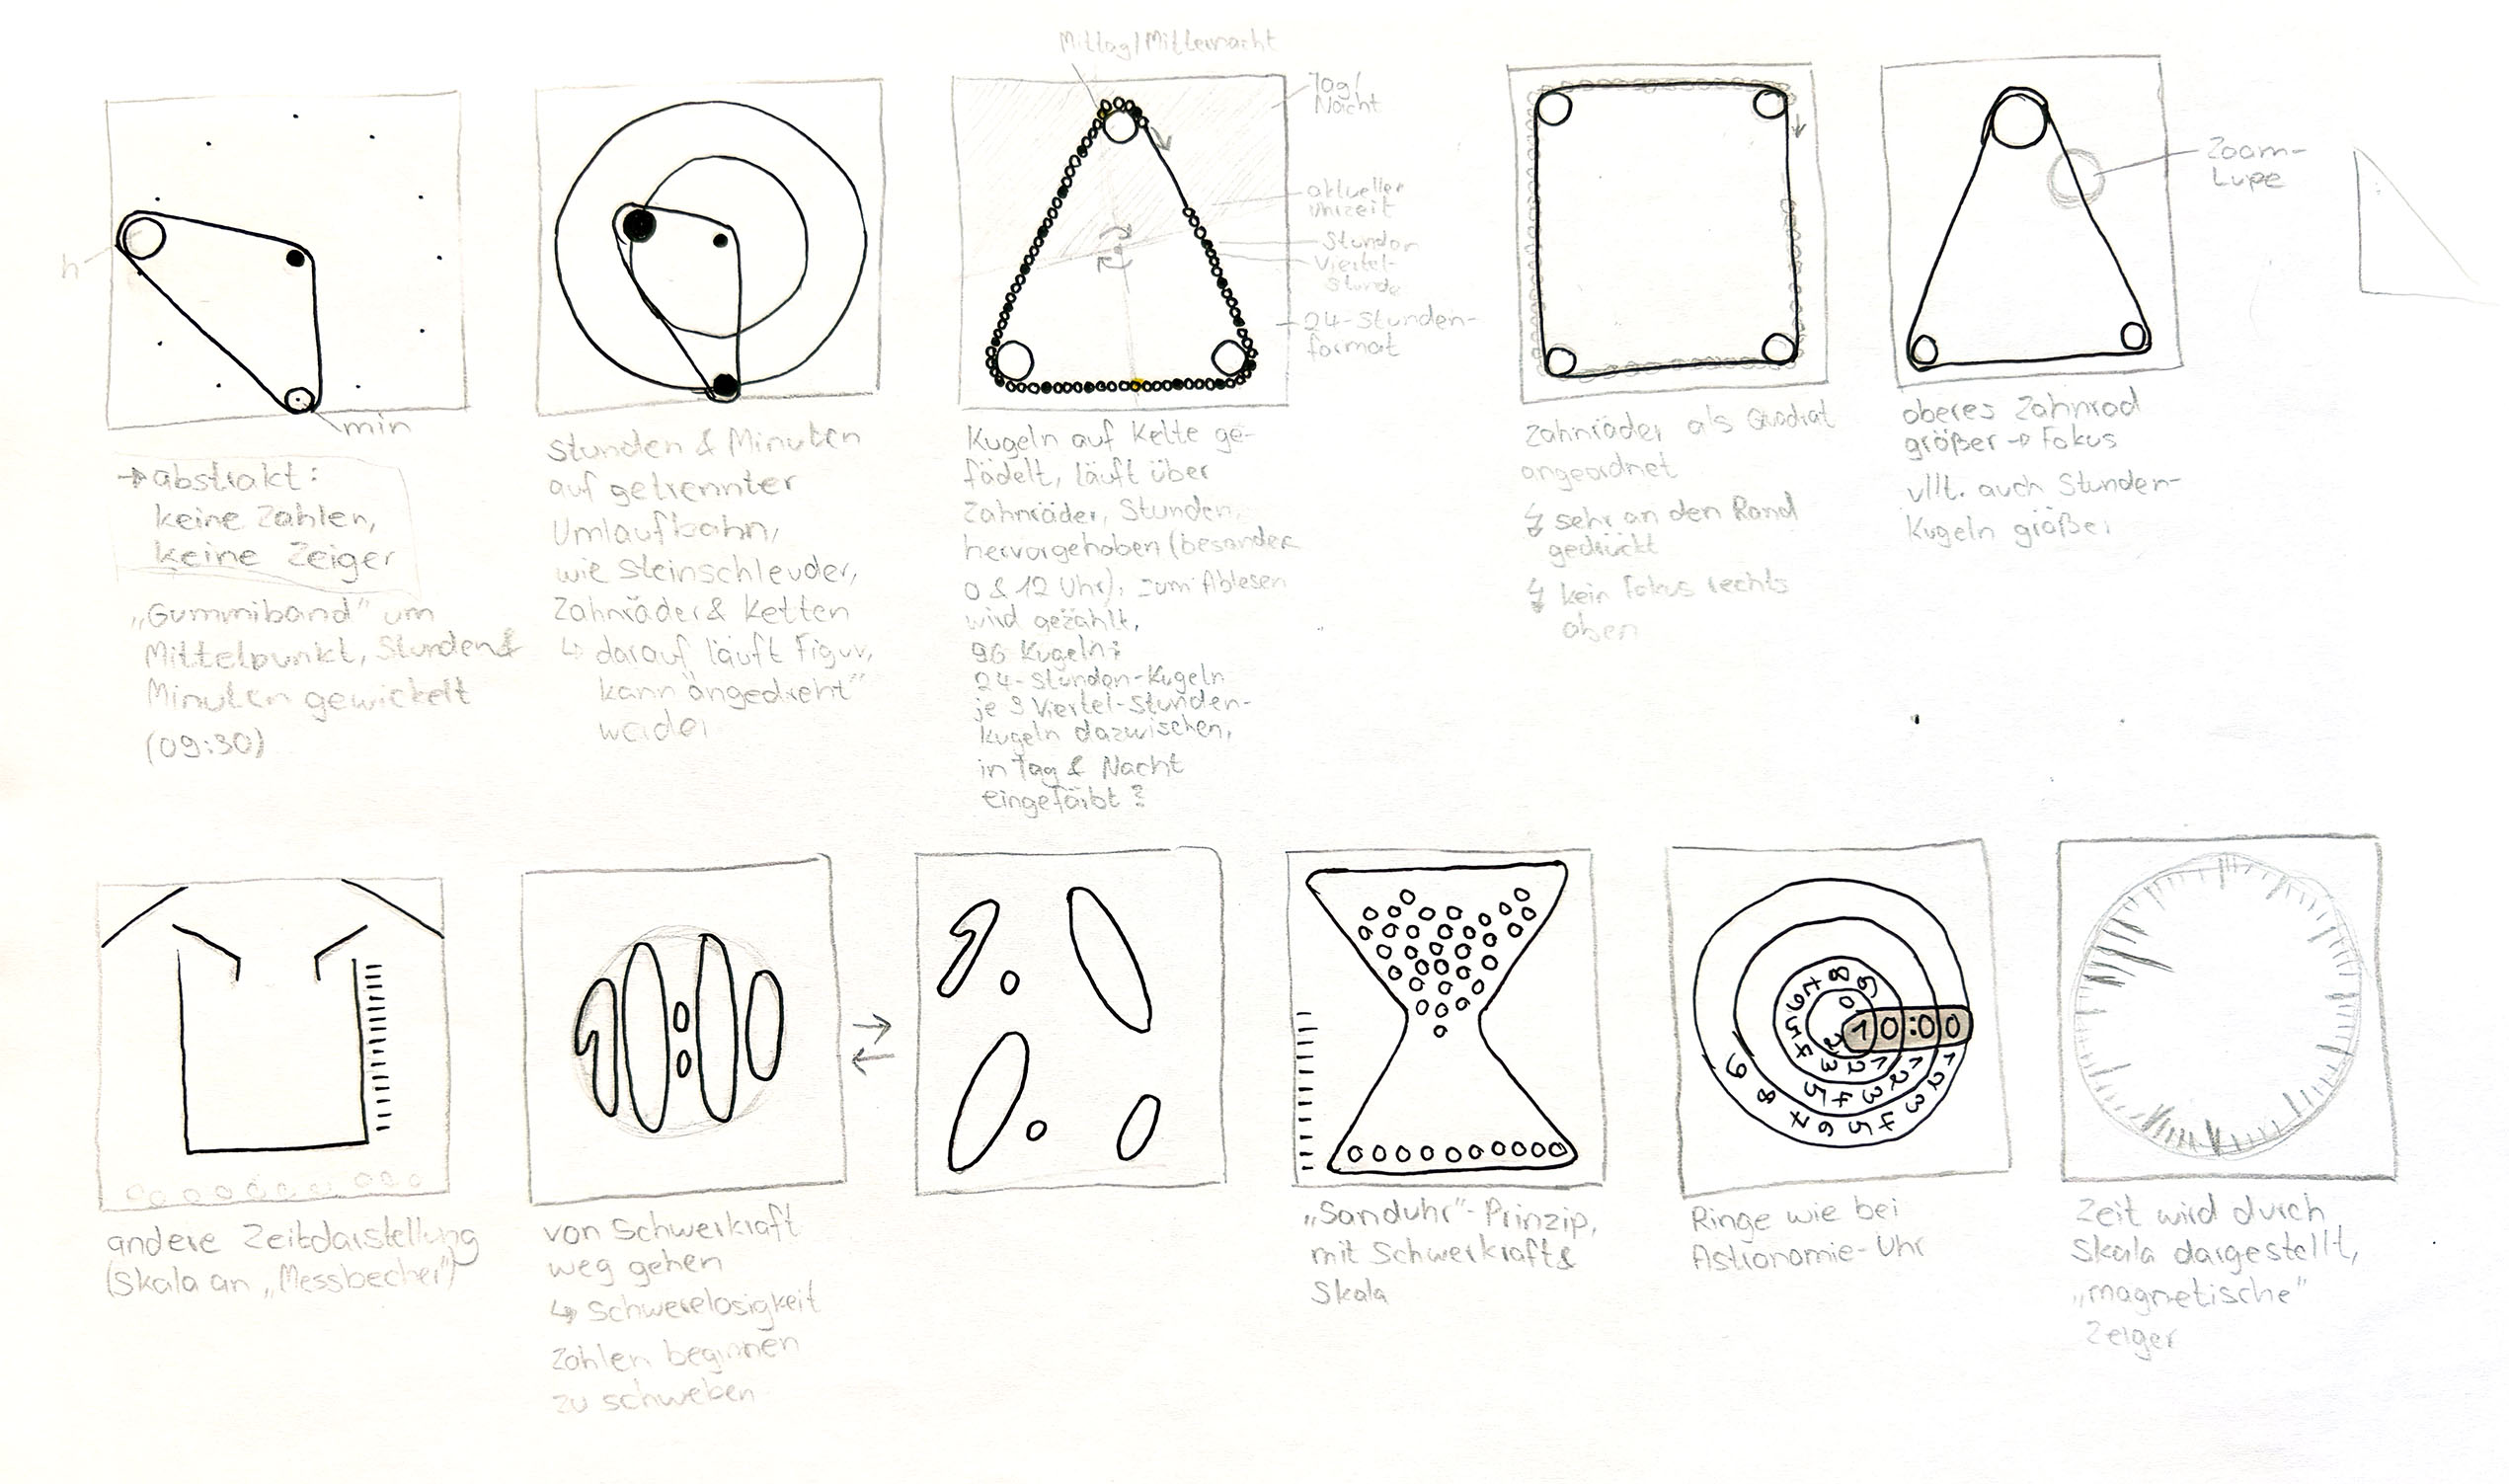 h
min
→ abstrakt:
keine Zahlen,
keine Zeiger
„Gummiband" um
Mittelpunkt, Stunden &
Minuten gewickelt
(09:30)
Stunden & Minuten
auf getrennter
Umlaufbahn,
wie Steinschleuder,
Zahnräder & Ketten
↳ darauf läuft Figur,
kann "angedreht"
werden
Mittag/Mitternacht
Tag/
Nacht
aktueller
Uhrzeit
Stunden
Viertel-
Stunde
24-Stunden-
format
Kugeln auf Kette ge-
fädelt, läuft über
Zahnräder, Stunden
hervorgehoben (besonders
0 & 12 Uhr), zum Ablesen
wird gezählt,
96 Kugeln:
24-Stunden-Kugeln
je 3 Viertel-Stunden-
Kugeln dazwischen,
in Tag & Nacht
eingefärbt?
Zahnräder als Quadrat
angeordnet
↯ sehr an den Rand
gedrückt
↯ kein Fokus rechts
oben
Zoom-
Lupe
oberes Zahnrad
größer → Fokus
vllt. auch Stunden-
Kugeln größer
andere Zeitdarstellung
(Skala an „Messbecher")
von Schwerkraft
weg gehen
↳ Schwerelosigkeit
Zahlen beginnen
zu schweben
„Sanduhr"-Prinzip,
mit Schwerkraft &
Skala
10:00
Ringe wie bei
Astronomie-Uhr
Zeit wird durch
Skala dargestellt,
„magnetische"
Zeiger